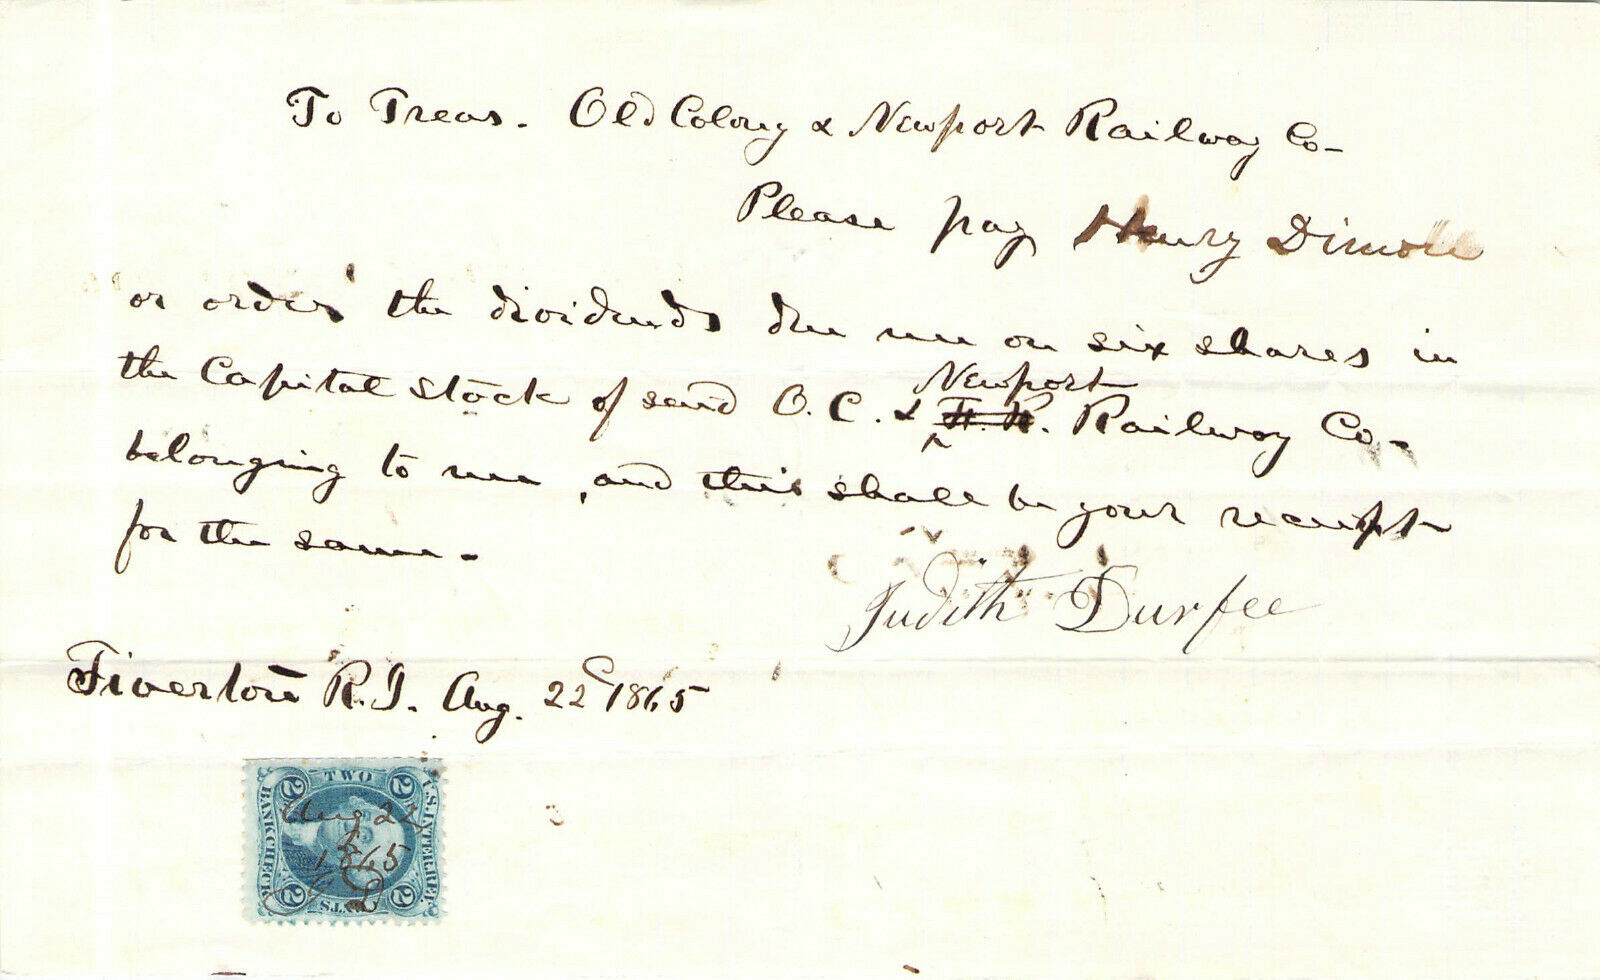 To Treas. Old Colony & Newport Railway Co-
Please pay Henry
or order the dividends due me on six shares in
the Capital Stock of said O. C. & Newport Railway Co-
belonging to me, and this shall be your receipt
for the same-
Judith Durfee
Tiverton R.I. Aug. 22 1865
TWO
2 2
U.S. INTER. REV.
BANK CHECK
Aug 22
1865
J D
2 CENTS 2